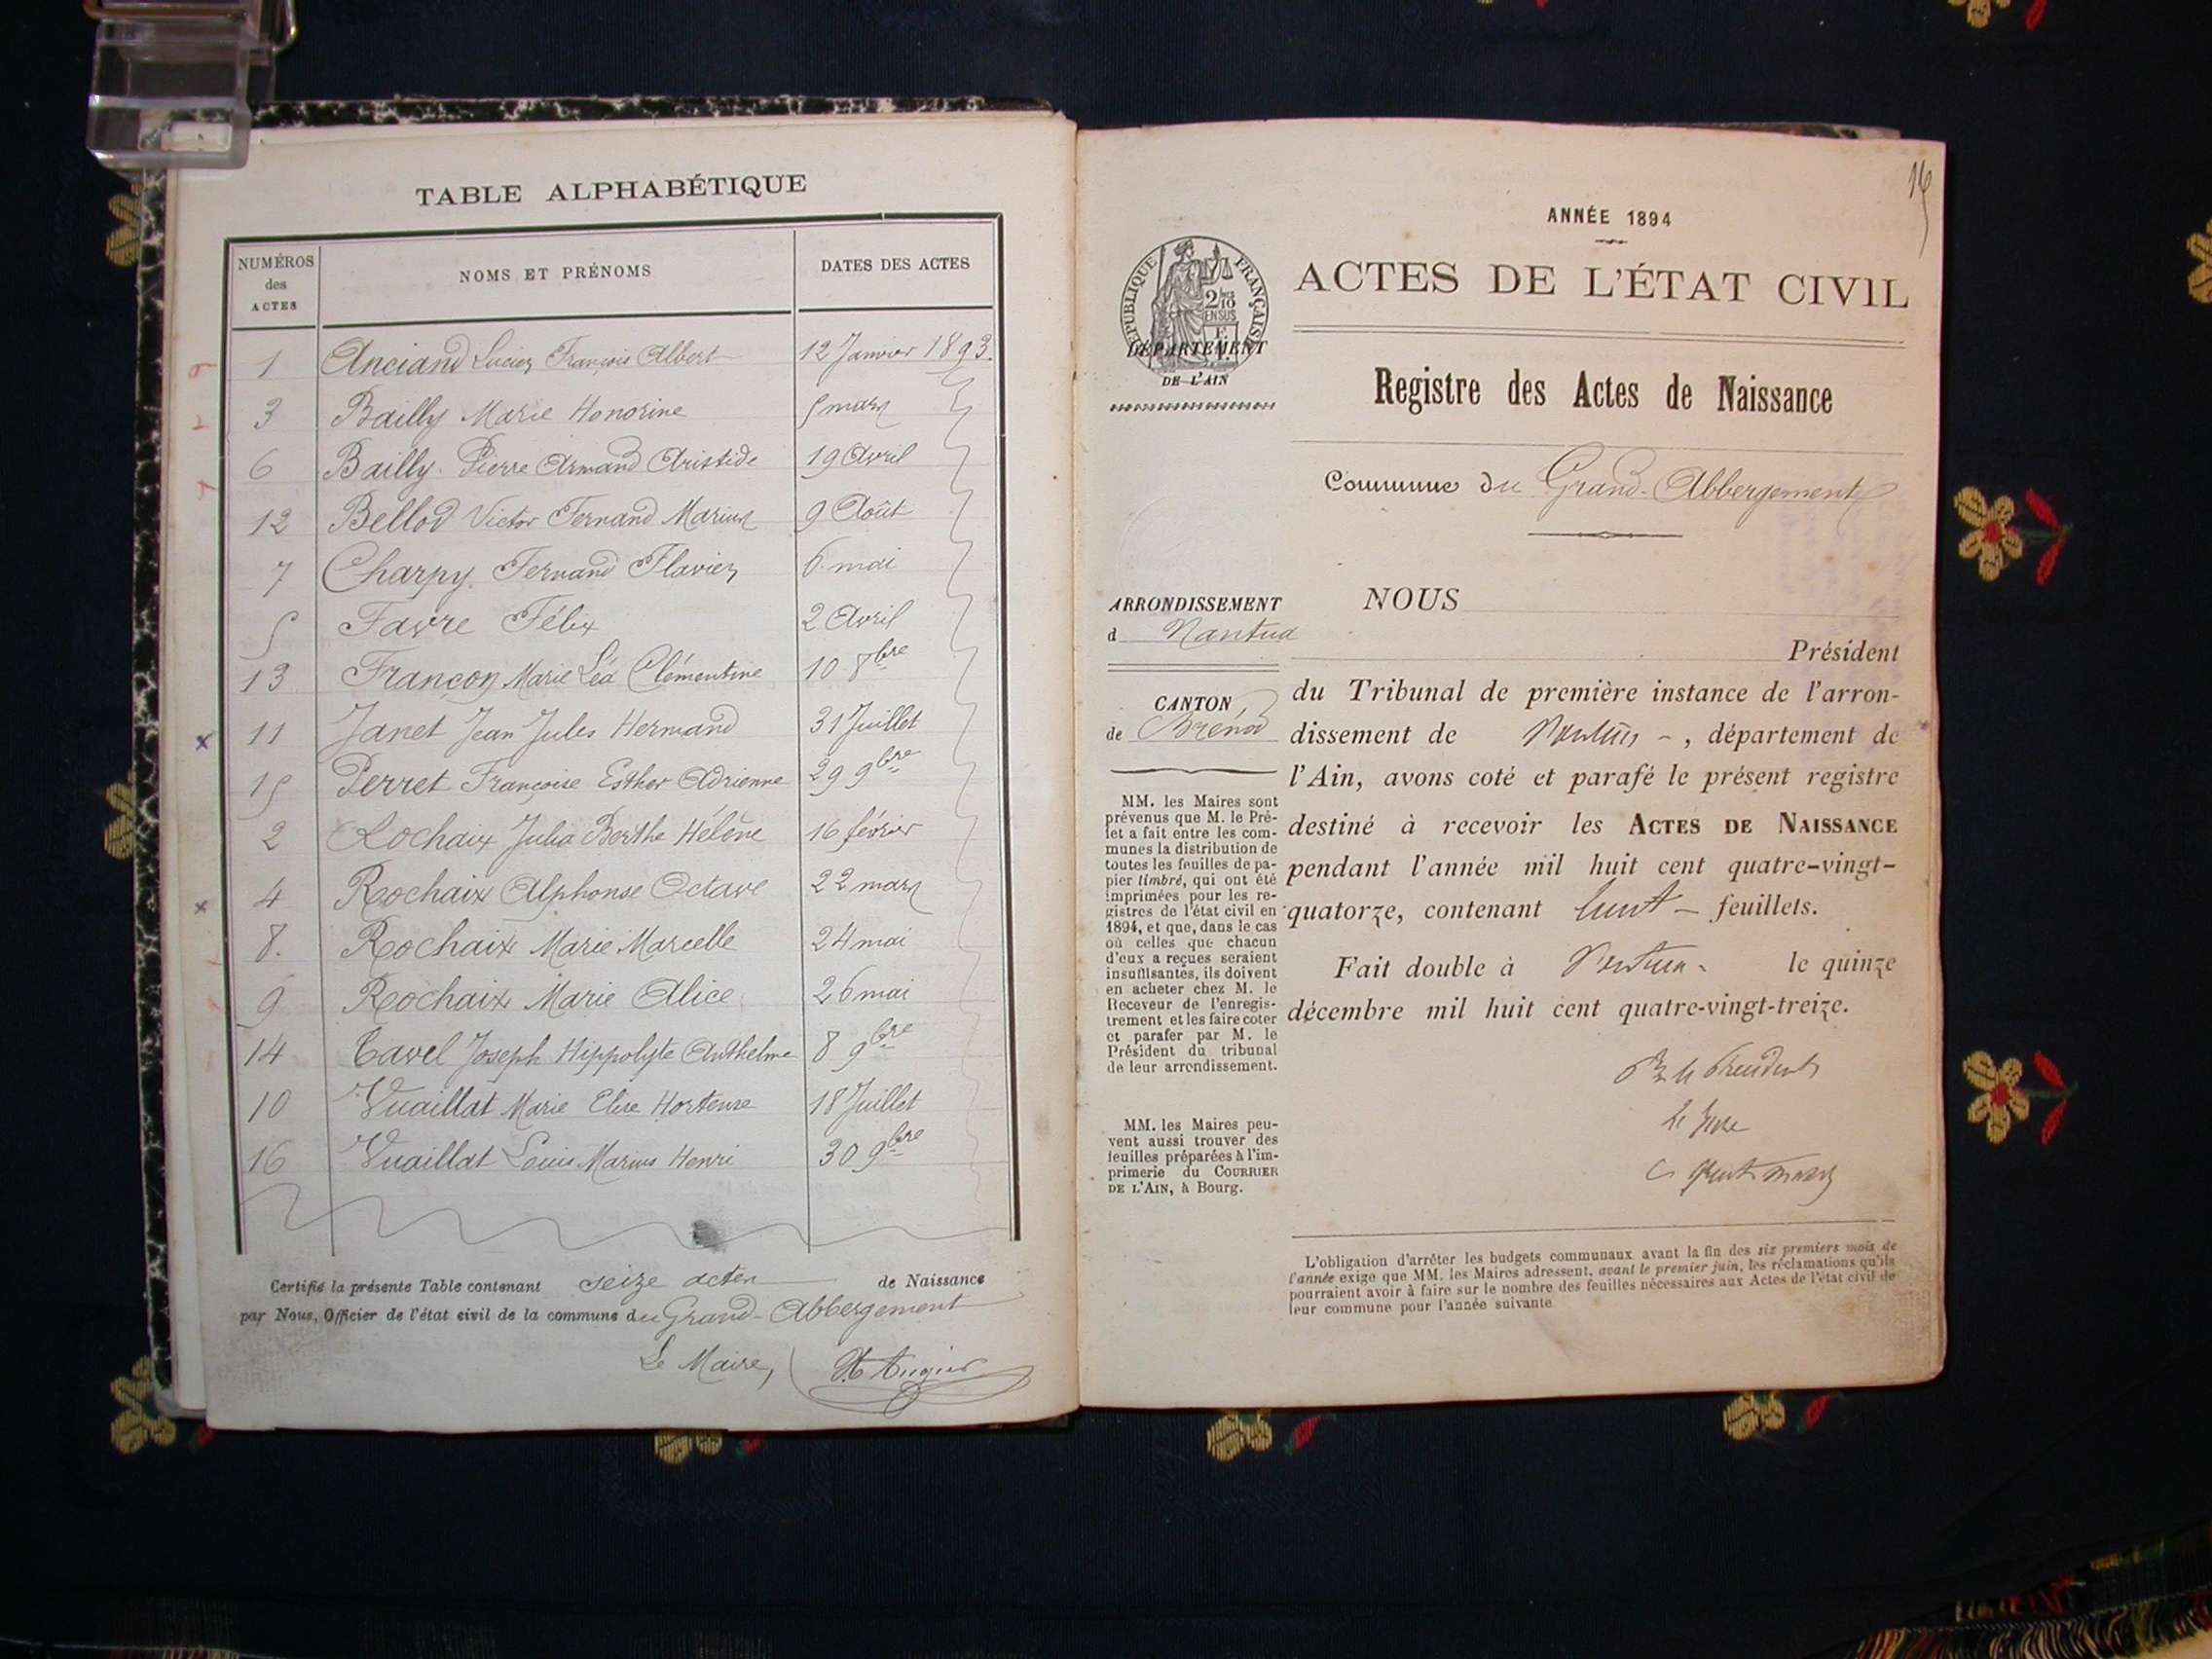 TABLE ALPHABÉTIQUE
NUMÉROS des ACTES NOMS ET PRÉNOMS DATES DES ACTES
1 Anciand Lucien François Albert 12 Janvier 1893.
3 Bailly Marie Honorine 5 mars
6 Bailly Pierre Armand Aristide 19 Avril
12 Bellod Victor Fernand Marius 9 Août
7 Charpy Fernand Flavien 6 mai
5 Favre Félix 2 Avril
13 Françon Marie Léa Clémentine 10 8bre
11 Janet Jean Jules Hermand 31 Juillet
15 Perret Françoise Esther Adrienne 29 9bre
2 Rochaix Julia Berthe Hélène 16 février
4 Rochaix Alphonse Octave 22 mars
8. Rochaix Marie Marcelle 24 mai
9 Rochaix Marie Alice 26 mai
14 Tavel Joseph Hippolyte Anthelme 8 9bre
10 Vuaillat Marie Elise Hortense 18 Juillet
16 Vuaillat Louis Marius Henri 30 9bre
Certifié la présente Table contenant seize actes de Naissance
par Nous, Officier de l'état civil de la commune du Grand-Abbergement
Le Maire,
ANNÉE 1894
ACTES DE L'ÉTAT CIVIL
RÉPUBLIQUE FRANÇAISE
2/10 EN SUS
DÉPARTEMENT
DE L'AIN
Registre des Actes de Naissance
Commune du Grand-Abbergement
ARRONDISSEMENT
d Nantua
CANTON
de Brénod
MM. les Maires sont
prévenus que M. le Pré-
fet a fait entre les com-
munes la distribution de
toutes les feuilles de pa-
pier timbré, qui ont été
imprimées pour les re-
gistres de l'état civil en
1894, et que, dans le cas
où celles que chacun
d'eux a reçues seraient
insuffisantes, ils doivent
en acheter chez M. le
Receveur de l'enregis-
trement et les faire coter
et parafer par M. le
Président du tribunal
de leur arrondissement.
MM. les Maires peu-
vent aussi trouver des
feuilles préparées à l'im-
primerie du COURRIER
DE L'AIN, à Bourg.
NOUS
Président
du Tribunal de première instance de l'arron-
dissement de Nantua -, département de
l'Ain, avons coté et parafé le présent registre
destiné à recevoir les ACTES DE NAISSANCE
pendant l'année mil huit cent quatre-vingt-
quatorze, contenant huit - feuillets.
Fait double à Nantua - le quinze
décembre mil huit cent quatre-vingt-treize.
Pr le Président
Le Juge
L'obligation d'arrêter les budgets communaux avant la fin des six premiers mois de
l'année exige que MM. les Maires adressent, avant le premier juin, les réclamations qu'ils
pourraient avoir à faire sur le nombre des feuilles nécessaires aux Actes de l'état civil de
leur commune pour l'année suivante